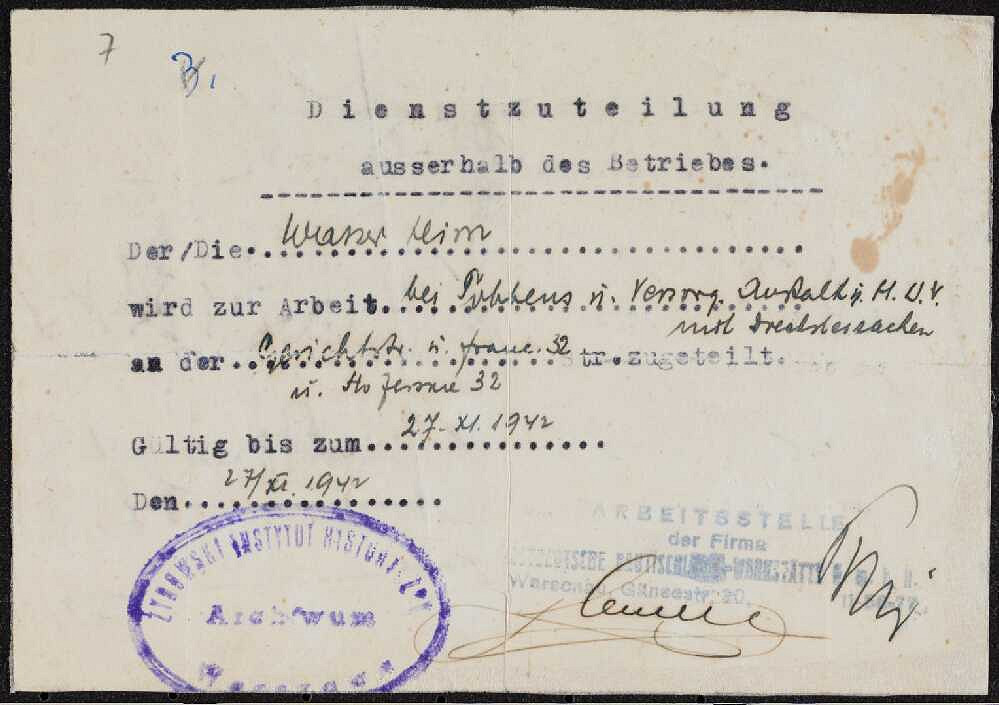 7
B.
Dienstzuteilung
ausserhalb des Betriebes.
Der/Die Wasser Hirsz
wird zur Arbeit bei Többens u. Versorg. Anstalt u. M.V.V.
mit
an der Gerichtstr. u. franc. 32 str. zugeteilt.
u. 32
Gültig bis zum 27. XI. 1942
Den 27/XI. 1942
ŻYDOWSKI INSTYTUT HISTORYCZNY
Archiwum
Warszawa
ARBEITSSTELLE
der Firma
OSTDEUTSCHE BAUTISCHLEREI-WERKSTÄTTE G. m. b. H.
Warschau, Gänsestr. 30,